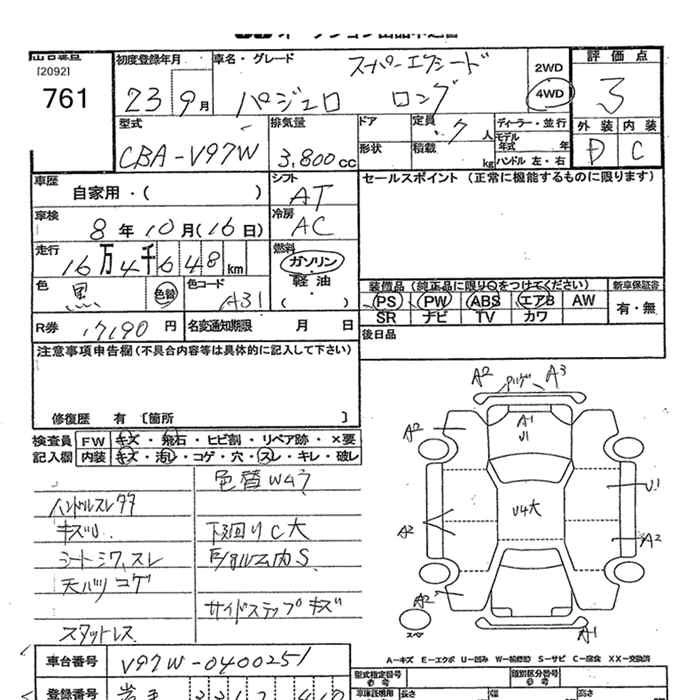 [2092]
761
初度登録年月
車名・グレード
スーパーエクシード
23 9月
パジェロ ロング
2WD
4WD
評価点
3
外装 内装
D C
型式
CBA-V97W
排気量
3,800cc
ドア
形状
定員 7人
積載 kg
ディーラー・並行
モデル年式 年
ハンドル 左・右
車歴
自家用・( )
シフト
AT
セールスポイント (正常に機能するものに限ります)
車検
8年10月(16日)
冷房
AC
走行
16万4千648km
燃料
ガソリン
軽油
( )
色
黒
色替
色コード
A31
装備品 (純正品に限り○をつけてください)
新車保証書
PS PW ABS エアB AW
SR ナビ TV カワ
有・無
R券 17190円
名変通知期限 月 日
後日品
注意事項申告欄(不具合内容等は具体的に記入して下さい)
修復歴 有 〔箇所 〕
検査員記入欄
FW キズ・飛石・ヒビ割・リペア跡・×要
内装 キズ・汚レ・コゲ・穴・スレ・キレ・破レ
色替W4ヲ
キズU
下廻りC大
シートシワ、スレ
天バリコゲ
サイドステップキズ
スタットレス
A2 A3
A2
A1
U1
U1
U4大
A2
A2
A2
A1
スペア
A-キズ E-エクボ U-凹み W-補修跡 S-サビ C-腐食 XX-交換済
車台番号
V97W-0400251
登録番号
型式指定番号
類別区分番号
長さ
幅
高さ